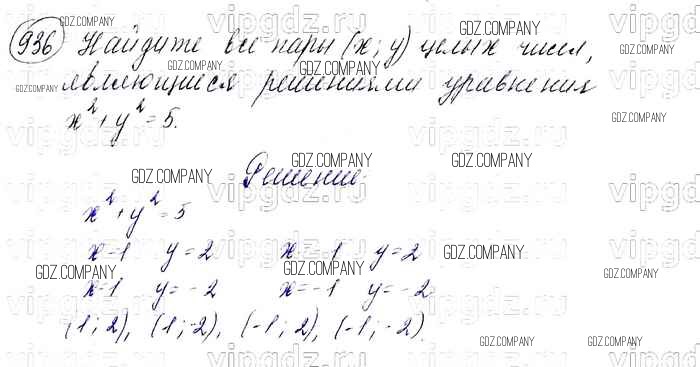 936 Найдите все пары (x; y) целых чисел,
являющиеся решениями уравнения
x² + y² = 5.
Решение:
x² + y² = 5
x=1 y=2 x=-1 y=2
x=1 y=-2 x=-1 y=-2
(1; 2), (1; -2), (-1; 2), (-1; -2)
GDZ.COMPANY
vipgdz.ru